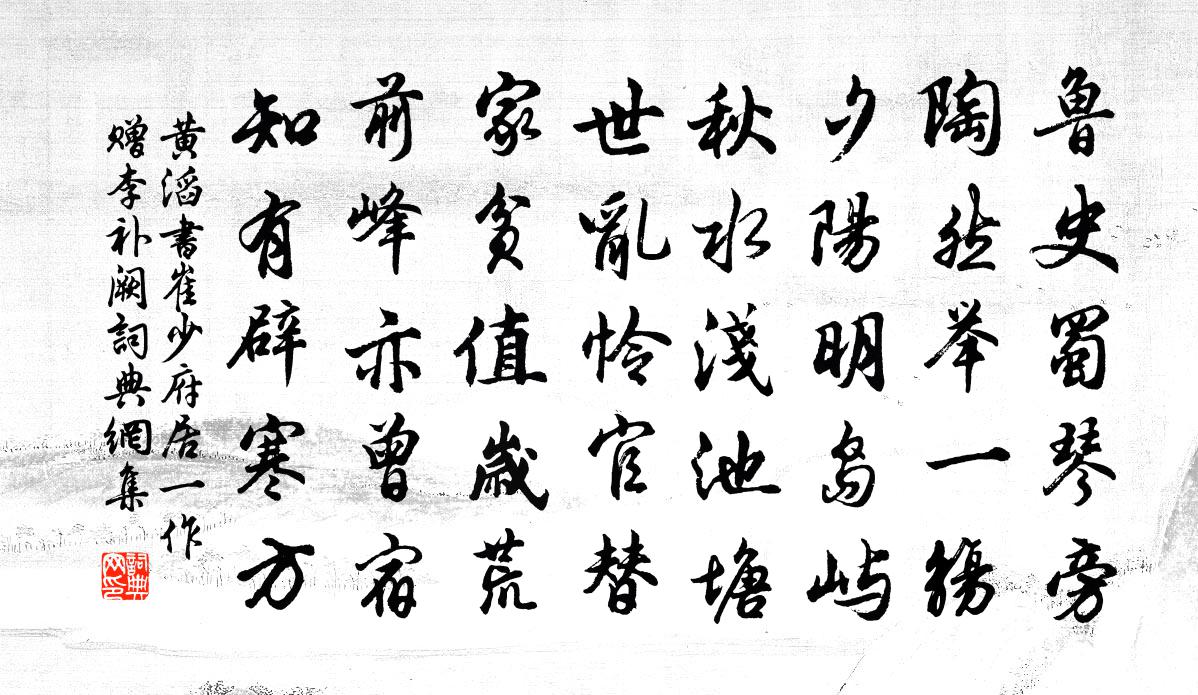 魯史蜀琴旁
陶然举一觴
夕陽明島屿
秋水淺池塘
世亂怜官替
家贫值歲荒
前峰亦曾宿
知有辟寒方
黄滔書崔少府居一作
赠李补阙詞典網集
詞典網印